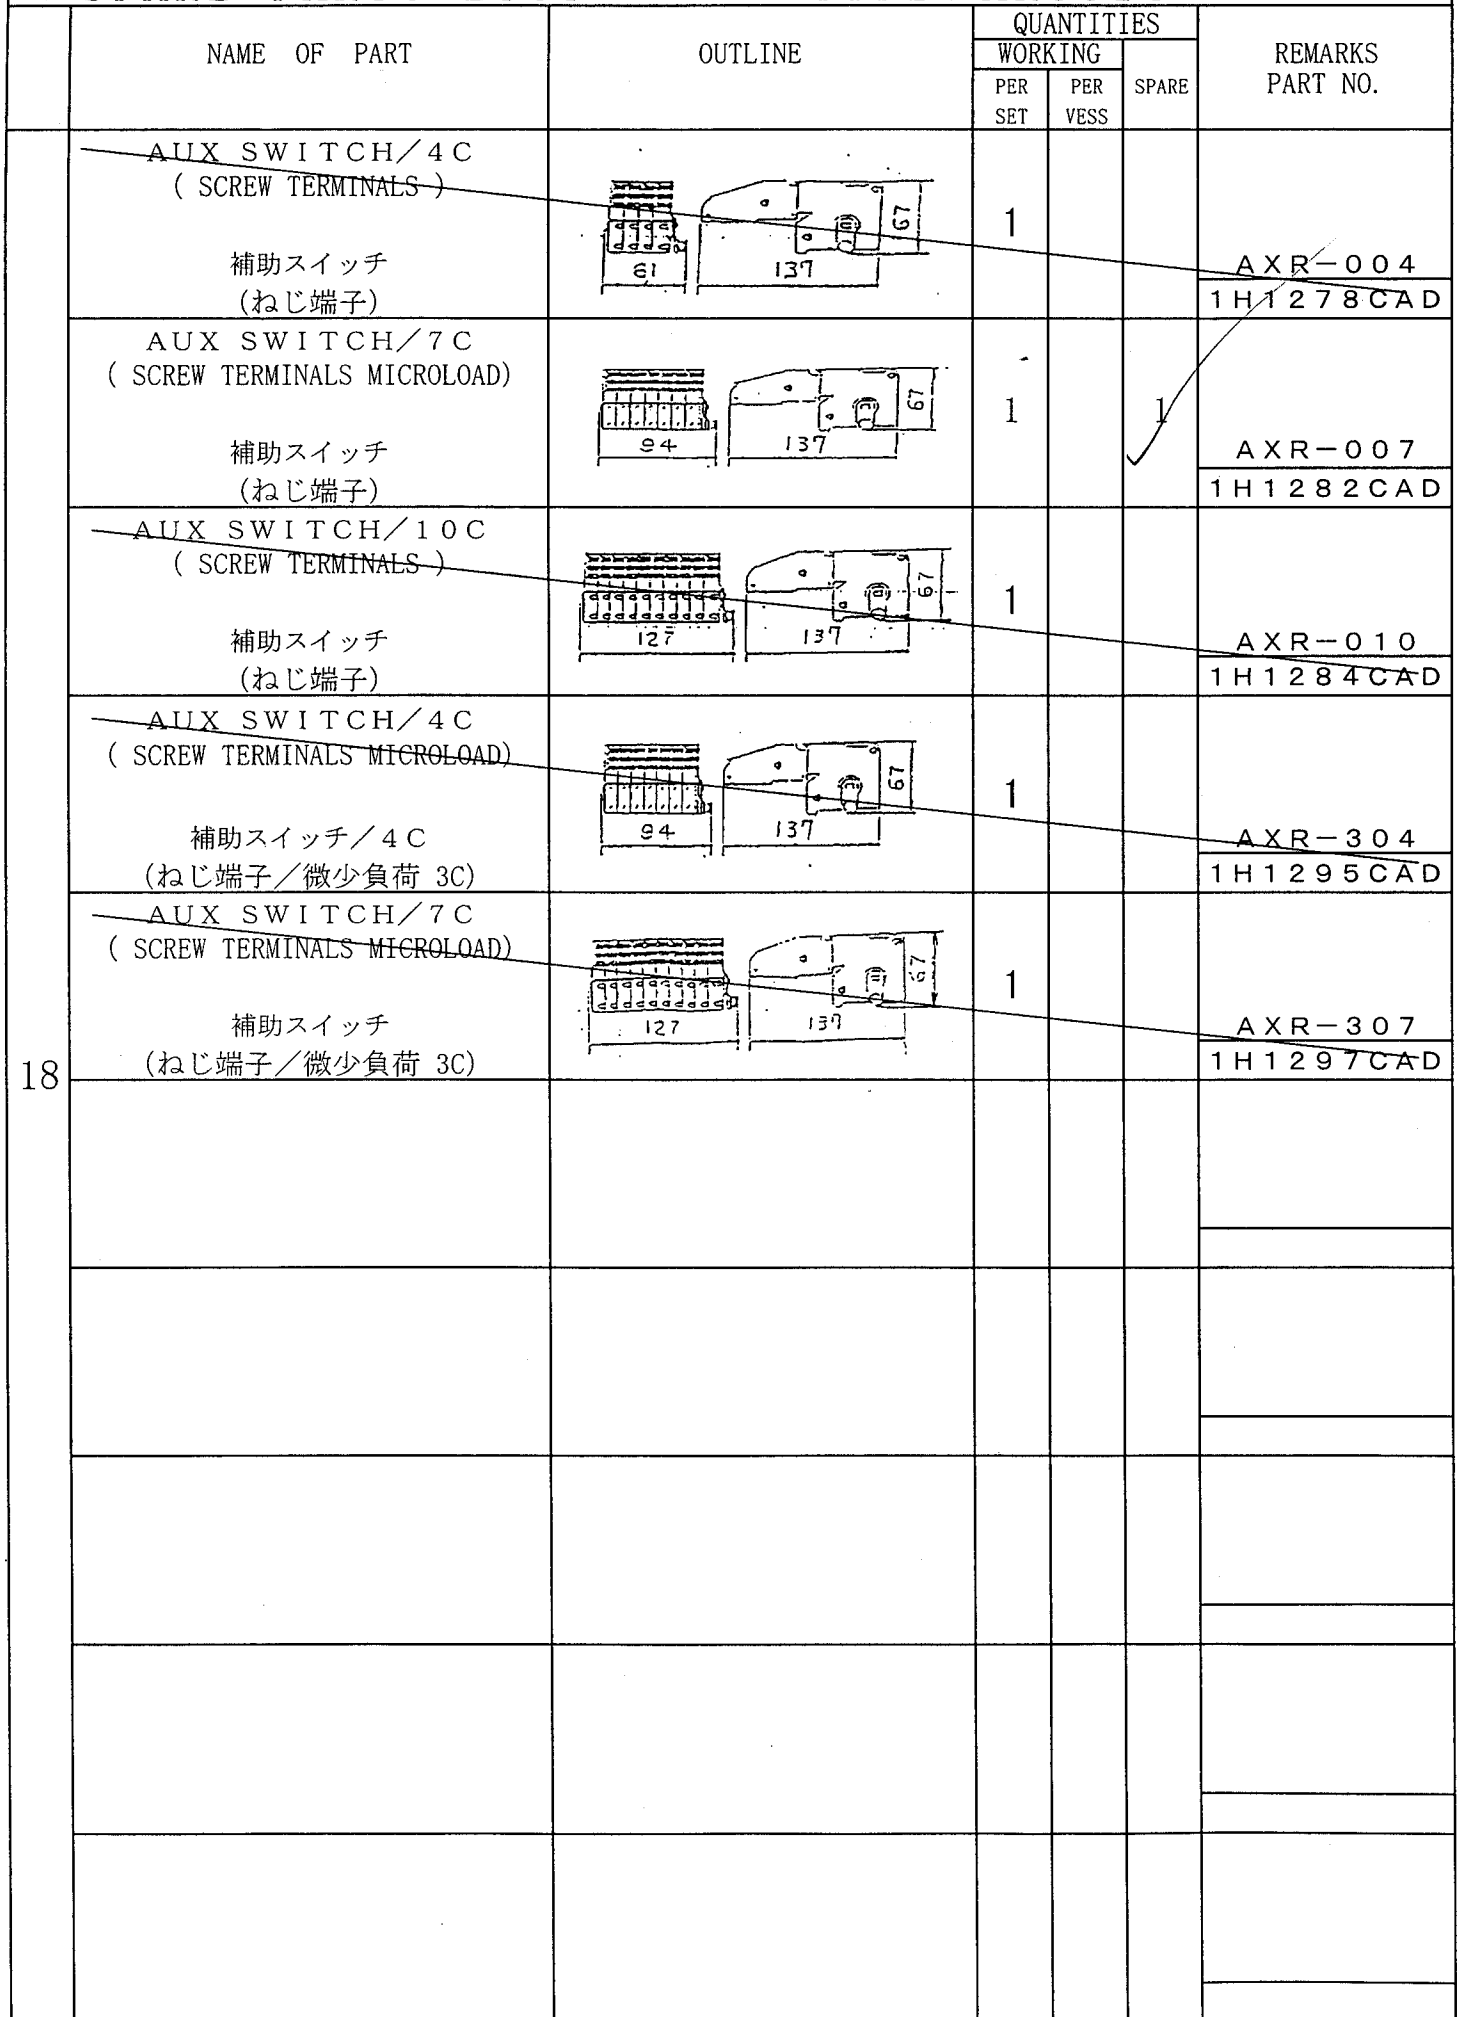 QUANTITIES
NAME OF PART
OUTLINE
WORKING
REMARKS
PART NO.
PER SET
PER VESS
SPARE
AUX SWITCH/4C
( SCREW TERMINALS )
補助スイッチ
(ねじ端子)
61
137
67
1
AXR-004
1H1278CAD
AUX SWITCH/7C
( SCREW TERMINALS MICROLOAD)
補助スイッチ
(ねじ端子)
94
137
67
1
1
AXR-007
1H1282CAD
AUX SWITCH/10C
( SCREW TERMINALS )
補助スイッチ
(ねじ端子)
127
137
67
1
AXR-010
1H1284CAD
AUX SWITCH/4C
( SCREW TERMINALS MICROLOAD)
補助スイッチ/4C
(ねじ端子/微少負荷 3C)
94
137
67
1
AXR-304
1H1295CAD
AUX SWITCH/7C
( SCREW TERMINALS MICROLOAD)
補助スイッチ
(ねじ端子/微少負荷 3C)
127
137
67
1
AXR-307
1H1297CAD
18